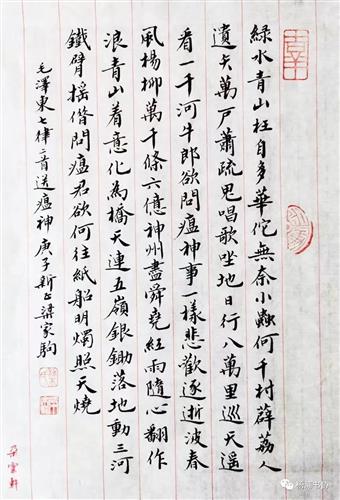 綠水青山枉自多華佗無奈小蟲何千村薜荔人
遺矢萬戶蕭疏鬼唱歌坐地日行八萬里巡天遥
看一千河牛郎欲問瘟神事一樣悲歡逐逝波春
風楊柳萬千條六億神州盡舜堯紅雨隨心翻作
浪青山着意化為橋天連五嶺銀鋤落地動三河
鐵臂摇借問瘟君欲何往紙船明燭照天燒
毛澤東七律二首送瘟神庚子新正梁家駒
朵雲軒